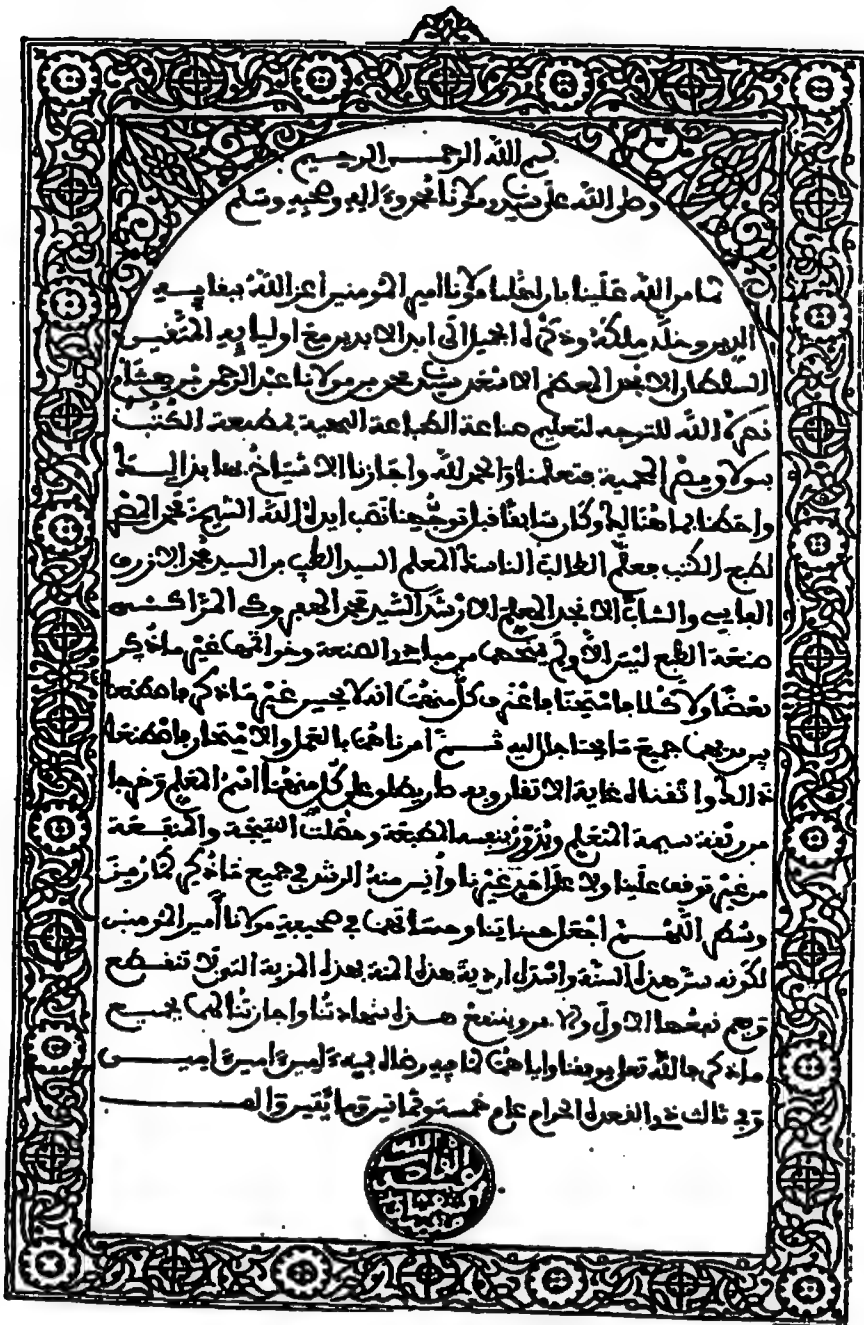 بسم الله الرحمن الرحيم
وصلى الله على سيدنا ومولانا محمد وءاله وصحبه وسلم
لما من الله علينا بان بعثنا مولانا امير المومنين اعز الله ببقايه
الدين وخلد ملكه وذكره الجميل الى ابد الابدين مع اوليايه المتقين
السلطان الافخر المعظم الاسعد سيدي محمد بن مولانا عبد الرحمن بن هشام
نصره الله للتوجه لتعليم صناعة الطباعة البهية بمطبعة الكتب
ببولاق مصر المحمية فتعلمنا والحمد لله واجازنا الاشياخ بها بذلك
بما هنالك وكان سابقا قبل توجهنا نصب ايده الله الشيخ محمد المصري
لطبع الكتب فعلم الطالب الناسك المعلم السيد الطيب بن السيد محمد الازرق
الفاسي والشاب الانجد المعلم الارشد السيد محمد الهفروكي المراكشي
صنعة الطبع ليس الا ولم من مباحث الصنعة وخواتمها غير ما ذكر
بعضا ولا كلا فامتحنا فاعترف كل منهما انه لا يحسن غير ما ذكر
جميع ما يحتاجان اليه ثم امرناهما بالعمل والامتحان
ذلك واتقناه غاية الاتقان وبه صار يطلق على كل منهما اسم المعلم وخرجا
من ربقة سمة المتعلم بنفسه الطبعة وحصلت النتيجة والمنفعة
من غير توقف علينا ولا على احد غيرنا وأنس منه الرشد في جميع ما ذكر
اللهم اجعل حسناتنا وحسناتهما في صحيفة مولانا أمير المومنين
لكونه سن هذه السنة واسدل اردية هذه المنة بهذه المزية التي لا تنقطع
هذه شهادتنا واجازتنا لهما بجميع
ما ذكر والله تعلى يوفقنا واياهما لما فيه رضاه ءامين ءامين ءامين
وفي ثالث ذي القعدة الحرام عام خمسة وثمانين ومايتين والف